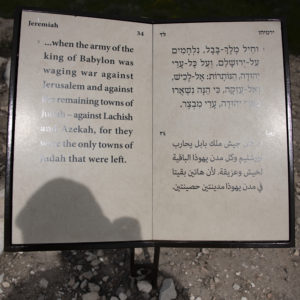 Jeremiah
34
...when the army of the
king of Babylon was
waging war against
Jerusalem and against
remaining towns of
– against Lachish
Azekah, for they
the only towns of
Judah that were left.
ירמיהו
לד
וְחֵיל מֶלֶךְ-בָּבֶל, נִלְחָמִים
עַל-יְרוּשָׁלִַם, וְעַל כָּל-עָרֵי
יְהוּדָה, הַנּוֹתָרוֹת: אֶל-לָכִישׁ,
וְאֶל-עֲזֵקָה, כִּי הֵנָּה נִשְׁאֲרוּ
יְהוּדָה, עָרֵי מִבְצָר.
٣٤
جيش ملك بابل يحارب
وكل مدن يهوذا الباقية
لخيش وعزيقة. لأن هاتين بقيتا
في مدن يهوذا مدينتين حصينتين.